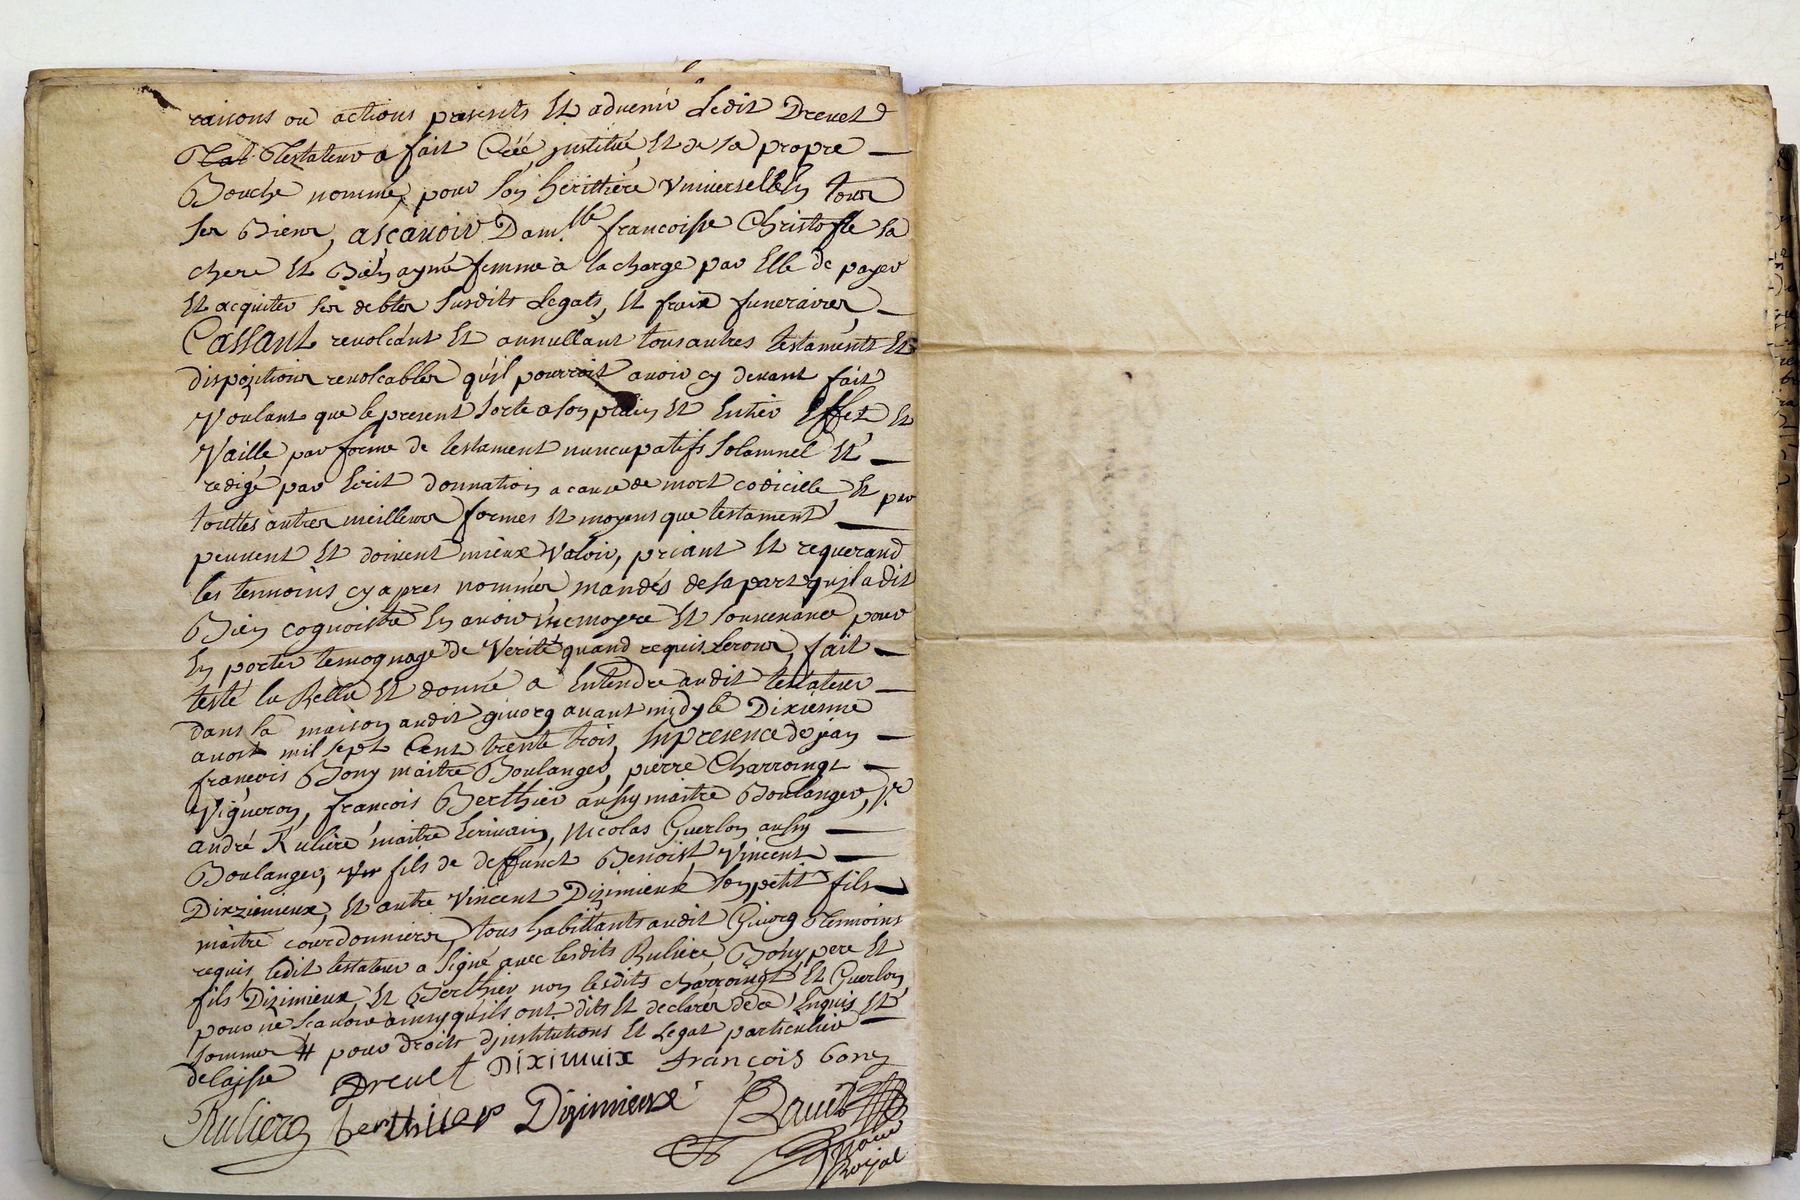 raisons ou actions presents Et aduenir Ledit Drevet
Testateur a fait Créé, justitué, Et de sa propre
Bouche nommé, pour son herittiere Vniverselle En tous
ses Biens, ascauoir Dam.lle francoisse Christofle sa
chere Et Bien aymé femme a la charge par Elle de payer
Et acquiter ses debtes susdits Legats, Et fraix funeraires,
Cassant revolcant Et annullant tous autres testaments Et
dispositions revolcables qu'il pourroit auoir cy devant fait
Voulant que le present sorte a son plain Et Entier Effet Et
Vaille par forme de testament nuncupatifs solamnel Et
redigé par Ecrit donnation a cause de mort codicille, Et par
touttes autres meilleurs formes Et moyens que testament
peuuent Et doiuent mieux Valoir, priant Et requerand
les temoins cy apres nommés, mandés de sa part qu'il a dit
Bien cognoistre En auoir memoyre Et souuenance pour
En porter temognage de Vérité quand requis seront, fait
testé lu Rellu Et donné a Entendre audit testateur
dans sa maison audit givorg auant midy le Dixiesme
aoust mil sept Cent trente trois, En presence de jean
françois Bony maitre Boulanger, pierre Charroingt
Vigneron, françois Berthier aussy maitre Boulanger, Sr
andré Ruliere maitre Ecrivain, Nicolas Guerlon aussy
Boulanger, fils de deffunct Benoist, Vincent
Dixzimieux, Et autre Vincent Dizimieux son petit fils
maitre courdonniers, tous habittants audit Givorg Temoins
requis ledit testateur a signé auec lesdits Ruliere, Bony, pere Et
fils Dizimieux, Et Berthier non lesdits charroingt Et Guerlon
pour ne scauoir ainsy qu'ils ont dits Et declarés de ce Enquis Et
sommes # pour droits d'institutions Et Legat particulier
delaisse Drevet Diximuix françois bony
Ruliere berthier Dizimieux
Notaire
Royal